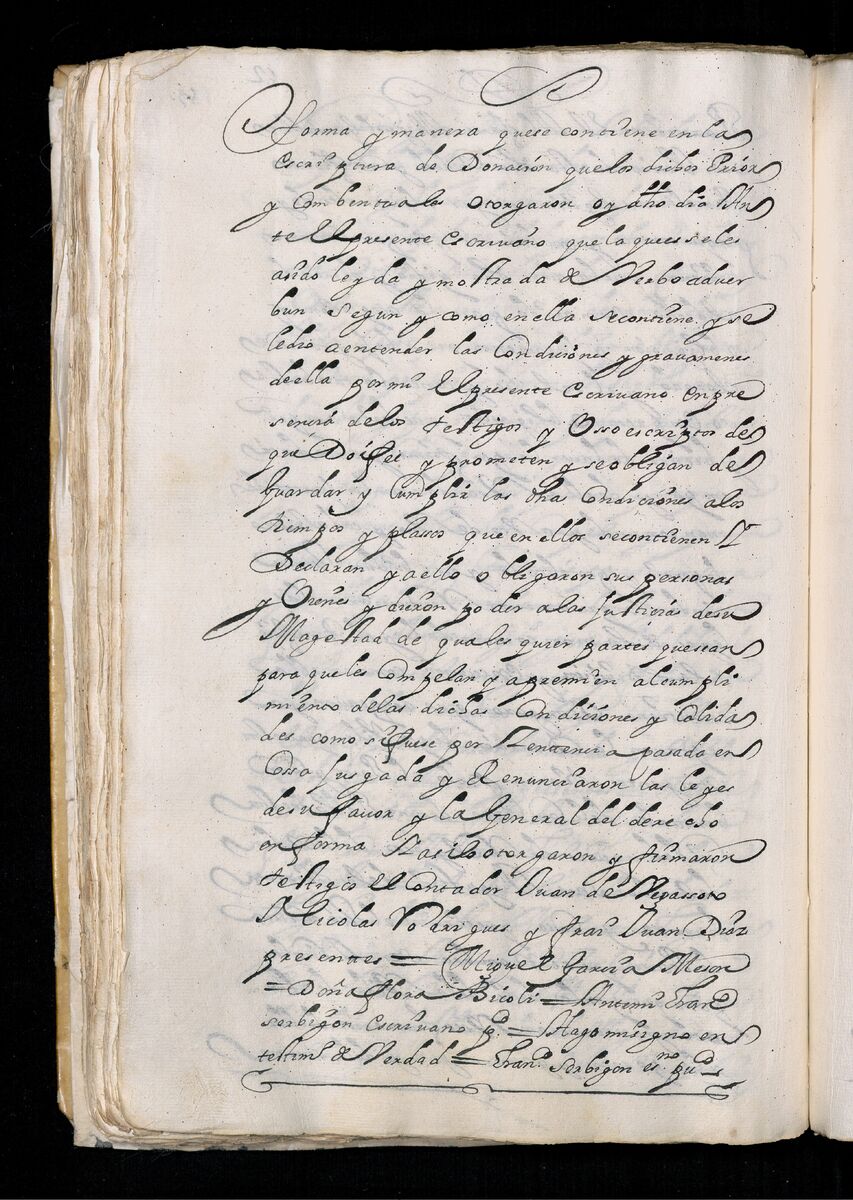 forma y manera quese contiene en la
escrip tura de Donación quelos dichos Prior
y Combentuales otorgaron oy dho dia An
te El presente escrivano que la quesse les
asido leyda y mostrada de Verbo adver
bun segun y como en ella secontiene y se
ledio a entender las Condiciones y gravamenes
deella por mi El presente escrivano en pre
sencia delos testigos y Osso escriptos de
que Doi fee y prometen y se obligan de
Guardar y Cumplir las dhas Condiciones alos
tiempos y plassos que en ellos secontienen Y
Declaran y aello obligaron sus personas
y Vienes y dieron poder alas Justicias desu
Magestad de quales quier partes quesean
para queles Compelan y apremien alcumpli
miento delas dichas Condiciones y Calida
des como sifuese por Sentencia pasada en
Cossa Jusgada y Renunciaron las leyes
desu favor y la General del derecho
en forma Y asilo otorgaron y firmaron
testigos El Contador Juan de
Nicolas Rodrigues y fran.co Juan Dias
presentes = Miguel Garcia Meson
= Doña flora Bicoli = Antemi Fran.co
serbigon escrivano p.co = Hago misigno en
testim.o de Verdad = Fran.co Serbigon es.no pu.co